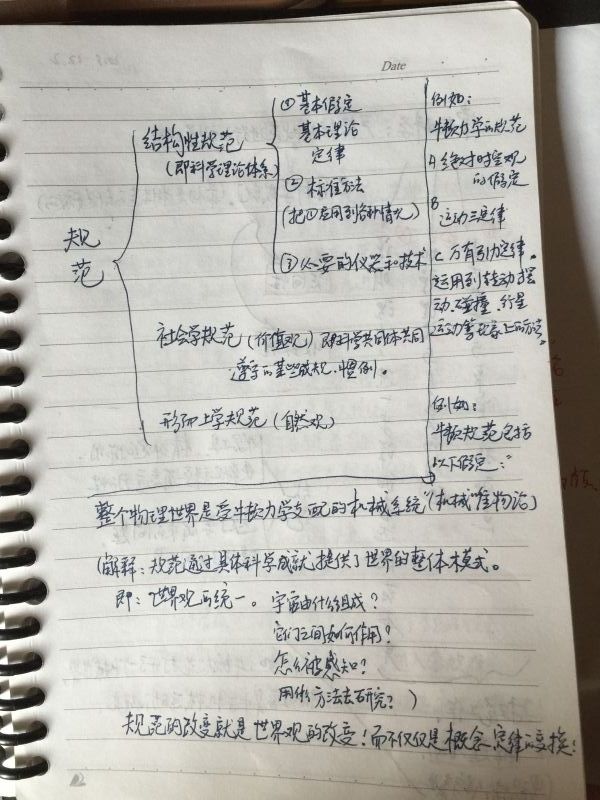 Date
规
范
结构性规范
(即科学理论体系)
① 基本假定
基本理论
定律
② 标准方法
(把①应用到各种情况)
③ 必要的仪器和技术
社会学规范(价值观)即科学共同体共同
遵守的某些成规、惯例。
形而上学规范(自然观)
例如:
牛顿力学的规范
A 绝对时空观
的假定
B
运动三定律
C 万有引力定律。
运用到转动摆
动、碰撞、行星
运动等现象上的方法。
例如:
牛顿规范包括
以下假定:"
整个物理世界是受牛顿力学支配的机械系统"(机械唯物论)
(解释:规范通过具体科学成就提供了世界的整体模式。
即:世界观的统一。宇宙由什么组成?
它们之间如何作用?
怎么被感知?
用什么方法去研究?)
规范的改变就是世界观的改变!而不仅仅是概念、定律的变换;